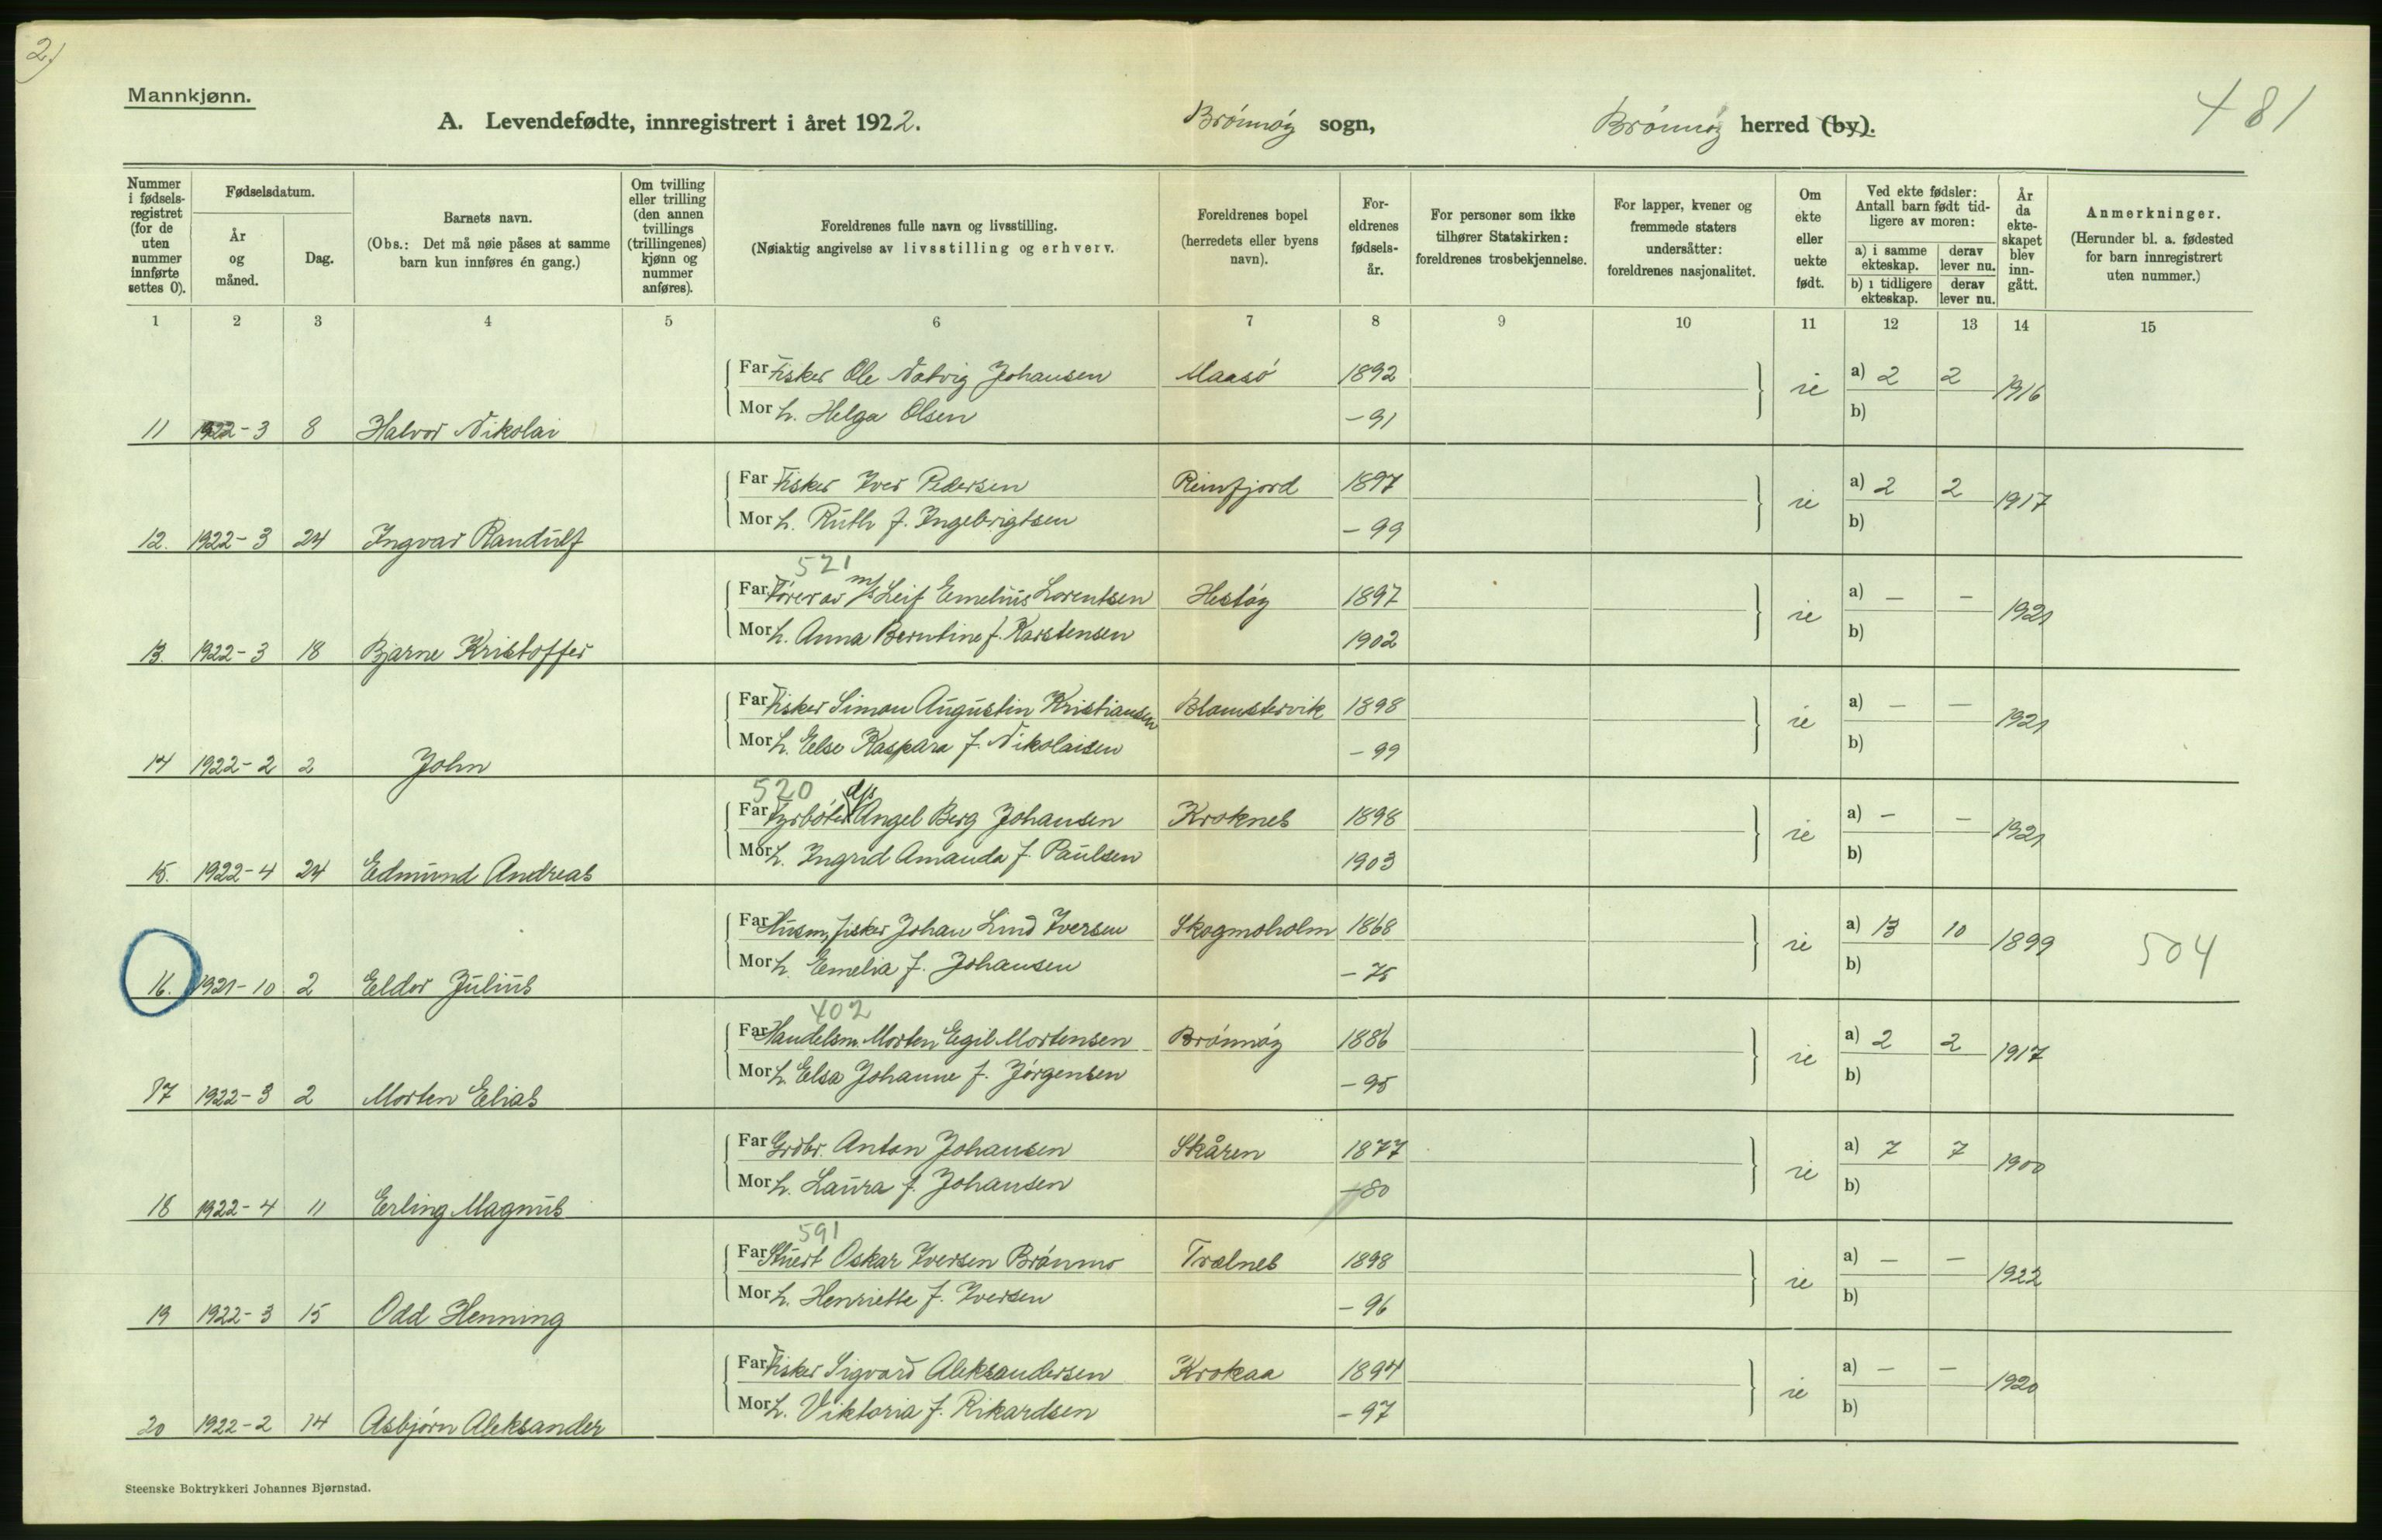 2)
Mannkjønn.
A. Levendefødte, innregistrert i året 1922. Brönnöy sogn, Brönnöy herred (by). 481
Nummer i fødselsregistret (for de uten nummer innførte settes 0).
Fødselsdatum.
År og måned.
Dag.
Barnets navn.
(Obs.: Det må nøie påses at samme barn kun innføres én gang.)
Om tvilling eller trilling (den annen tvillings (trillingenes) kjønn og nummer anføres).
Foreldrenes fulle navn og livsstilling.
(Nøiaktig angivelse av livsstilling og erhverv.
Foreldrenes bopel (herredets eller byens navn).
Foreldrenes fødselsår.
For personer som ikke tilhører Statskirken: foreldrenes trosbekjennelse.
For lapper, kvener og fremmede staters undersåtter: foreldrenes nasjonalitet.
Om ekte eller uekte født.
Ved ekte fødsler: Antall barn født tidligere av moren:
a) i samme ekteskap.
derav lever nu.
b) i tidligere ekteskap.
derav lever nu.
År da ekteskapet blev inngått.
Anmerkninger.
(Herunder bl. a. fødested for barn innregistrert uten nummer.)
1 2 3 4 5 6 7 8 9 10 11 12 13 14 15
Far Fisker Ole Natvig Johansen Maasö 1892 a) 2 2
11 1922-3 8 Halvor Nikolai Mor h. Helga Olsen -91 ie b) 1916
Far Fisker Iver Pedersen Reinfjord 1897 a) 2 2
12. 1922-3 24 Ingvar Randulf Mor h. Ruth f. Ingebrigtsen -99 ie b) 1917
521
Far Förer av m/s Leif Emelius Lorentsen Hestöy 1897 a) — —
13. 1922-3 18 Bjarne Kristoffer Mor h. Anna Berntine f. Karstensen 1902 ie b) 1921
Far Fisker Simon Augustin Kristiansen Blomstervik 1898 a) — —
14 1922-2 2 John Mor h. Else Kaspara f. Nikolaisen -99 ie b) 1921
520
Far Fyrböter d/s Angel Berg Johansen Kroknes 1898 a) — —
15. 1922-4 24 Edmund Andreas Mor h. Ingrid Amanda f. Paulsen 1903 ie b) 1921
Far Husm, fisker Johan Lind Iversen Skogmoholm 1868 a) 13 10
16. 1921-10 2 Eldor Julius Mor h. Emelia f. Johansen -75 ie b) 1899 504
402
Far Handelsm. Morten Egil Mortensen Brönnöy 1886 a) 2 2
17 1922-3 2 Morten Elias Mor h. Elsa Johanne f. Jörgensen -95 ie b) 1917
Far Grdbr. Anton Johansen Skåren 1877 a) 7 7
18 1922-4 11 Erling Magnus Mor h. Laura f. Johansen -80 ie b) 1900
591
Far Stuert Oskar Iversen Brönmo Trælnes 1898 a) — —
19 1922-3 15 Odd Henning Mor h. Henriette f. Iversen -96 ie b) 1922
Far Fisker Sigvard Aleksandersen Krokaa 1894 a) — —
20 1922-2 14 Asbjørn Aleksander Mor h. Viktoria f. Rikardsen -97 ie b) 1920
Steenske Boktrykkeri Johannes Bjørnstad.